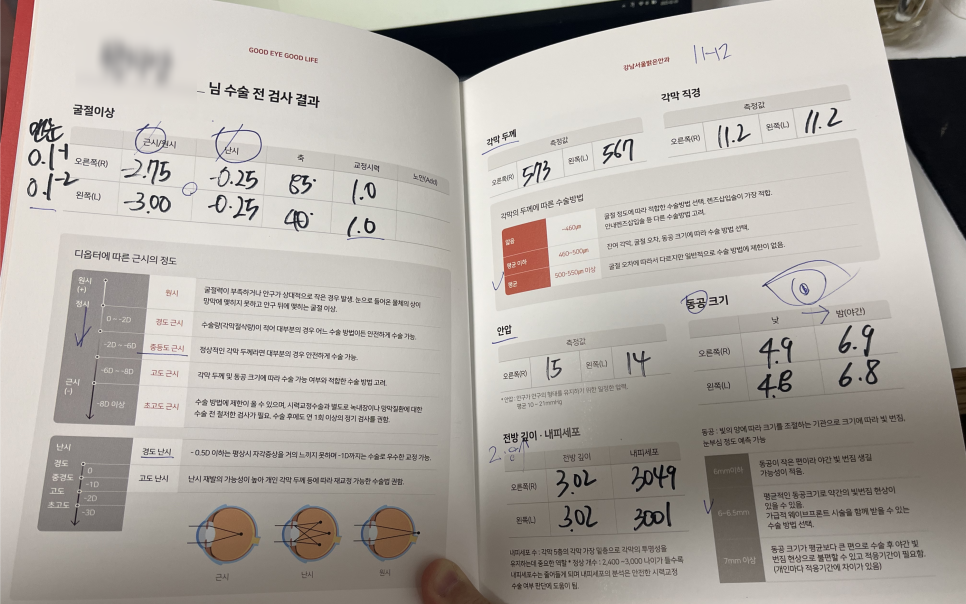 GOOD EYE GOOD LIFE
님 수술 전 검사 결과
굴절이상
근시/원시 난시 축 교정시력 노안(Add)
0.1+1 오른쪽(R) -2.75 -0.25 85° 1.0
0.1-2 왼쪽(L) -3.00 -0.25 40° 1.0
디옵터에 따른 근시의 정도
원시 (+)
정시
0 ~ -2D
-2D ~ -6D
-6D ~ -8D
-8D 이상
근시 (-)
원시 굴절력이 부족하거나 안구가 상대적으로 작은 경우 발생. 눈으로 들어온 물체의 상이
망막에 맺히지 못하고 안구 뒤에 맺히는 굴절 이상.
경도 근시 수술량(각막절삭량)이 적어 대부분의 경우 어느 수술 방법이든 안전하게 수술 가능.
중등도 근시 정상적인 각막 두께라면 대부분의 경우 안전하게 수술 가능.
고도 근시 각막 두께 및 동공 크기에 따라 수술 가능 여부와 적합한 수술 방법 고려.
초고도 근시 수술 방법에 제한이 올 수 있으며, 시력교정수술과 별도로 녹내장이나 망막질환에 대한
수술 전 철저한 검사가 필요. 수술 후에도 연 1회 이상의 정기 검사를 권함.
난시
경도
중경도
고도
초고도
0
-1D
-2D
-3D
경도 난시 - 0.5D 이하는 평상시 자각증상을 거의 느끼지 못하며 -1D까지는 수술로 우수한 교정 가능.
고도 난시 난시 재발의 가능성이 높아 개인 각막 두께 등에 따라 재교정 가능한 수술법 권함.
근시 난시 원시
강남서울밝은안과 11-12
각막 두께
측정값
오른쪽(R) 573 왼쪽(L) 567
각막 직경
측정값
오른쪽(R) 11.2 왼쪽(L) 11.2
각막의 두께에 따른 수술방법
얇음 ~460㎛ 굴절 정도에 따라 적합한 수술방법 선택. 렌즈삽입술이 가장 적합.
안내렌즈삽입술 등 다른 수술방법 고려.
평균 이하 460~500㎛ 잔여 각막, 굴절 오차, 동공 크기에 따라 수술 방법 선택.
평균 500-550㎛ 이상 굴절 오차에 따라서 다르지만 일반적으로 수술 방법에 제한이 없음.
안압
측정값
오른쪽(R) 15 왼쪽(L) 14
*안압 : 안구가 안구의 형태를 유지하기 위한 일정한 압력.
평균 10 ~ 21mmHg
동공 크기
낮 밤(야간)
오른쪽(R) 4.9 6.9
왼쪽(L) 4.8 6.8
전방 깊이 · 내피세포
전방 깊이 내피세포
오른쪽(R) 3.02 3049
왼쪽(L) 3.02 3001
내피세포 수 : 각막 5층의 각막 가장 밑층으로 각막의 투명성을
유지하는데 중요한 역할 * 정상 개수 : 2,400 ~3,000 나이가 들수록
내피세포수는 줄어들게 되며 내피세포의 분석은 안전한 시력교정
수술 여부 판단에 도움이 됨.
동공 : 빛의 양에 따라 크기를 조절하는 기관으로 크기에 따라 빛 번짐,
눈부심 정도 예측 가능
6mm이하 동공이 작은 편이라 야간 빛 번짐 생길
가능성이 적음.
6~6.5mm 평균적인 동공크기로 약간의 빛번짐 현상이
있을 수 있음.
가급적 웨이브프론트 시술을 함께 받을 수 있는
수술 방법 선택.
7mm 이상 동공 크기가 평균보다 큰 편으로 수술 후 야간 빛
번짐 현상으로 불편할 수 있고 적응기간이 필요함.
(개인마다 적응기간에 차이가 있음)